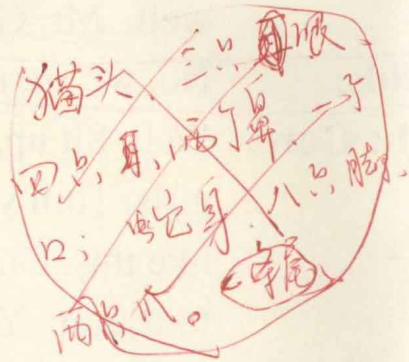 猫头 三只眼
四只耳,两个鼻,一个
口;蛇身,八只脚,
两只爪。